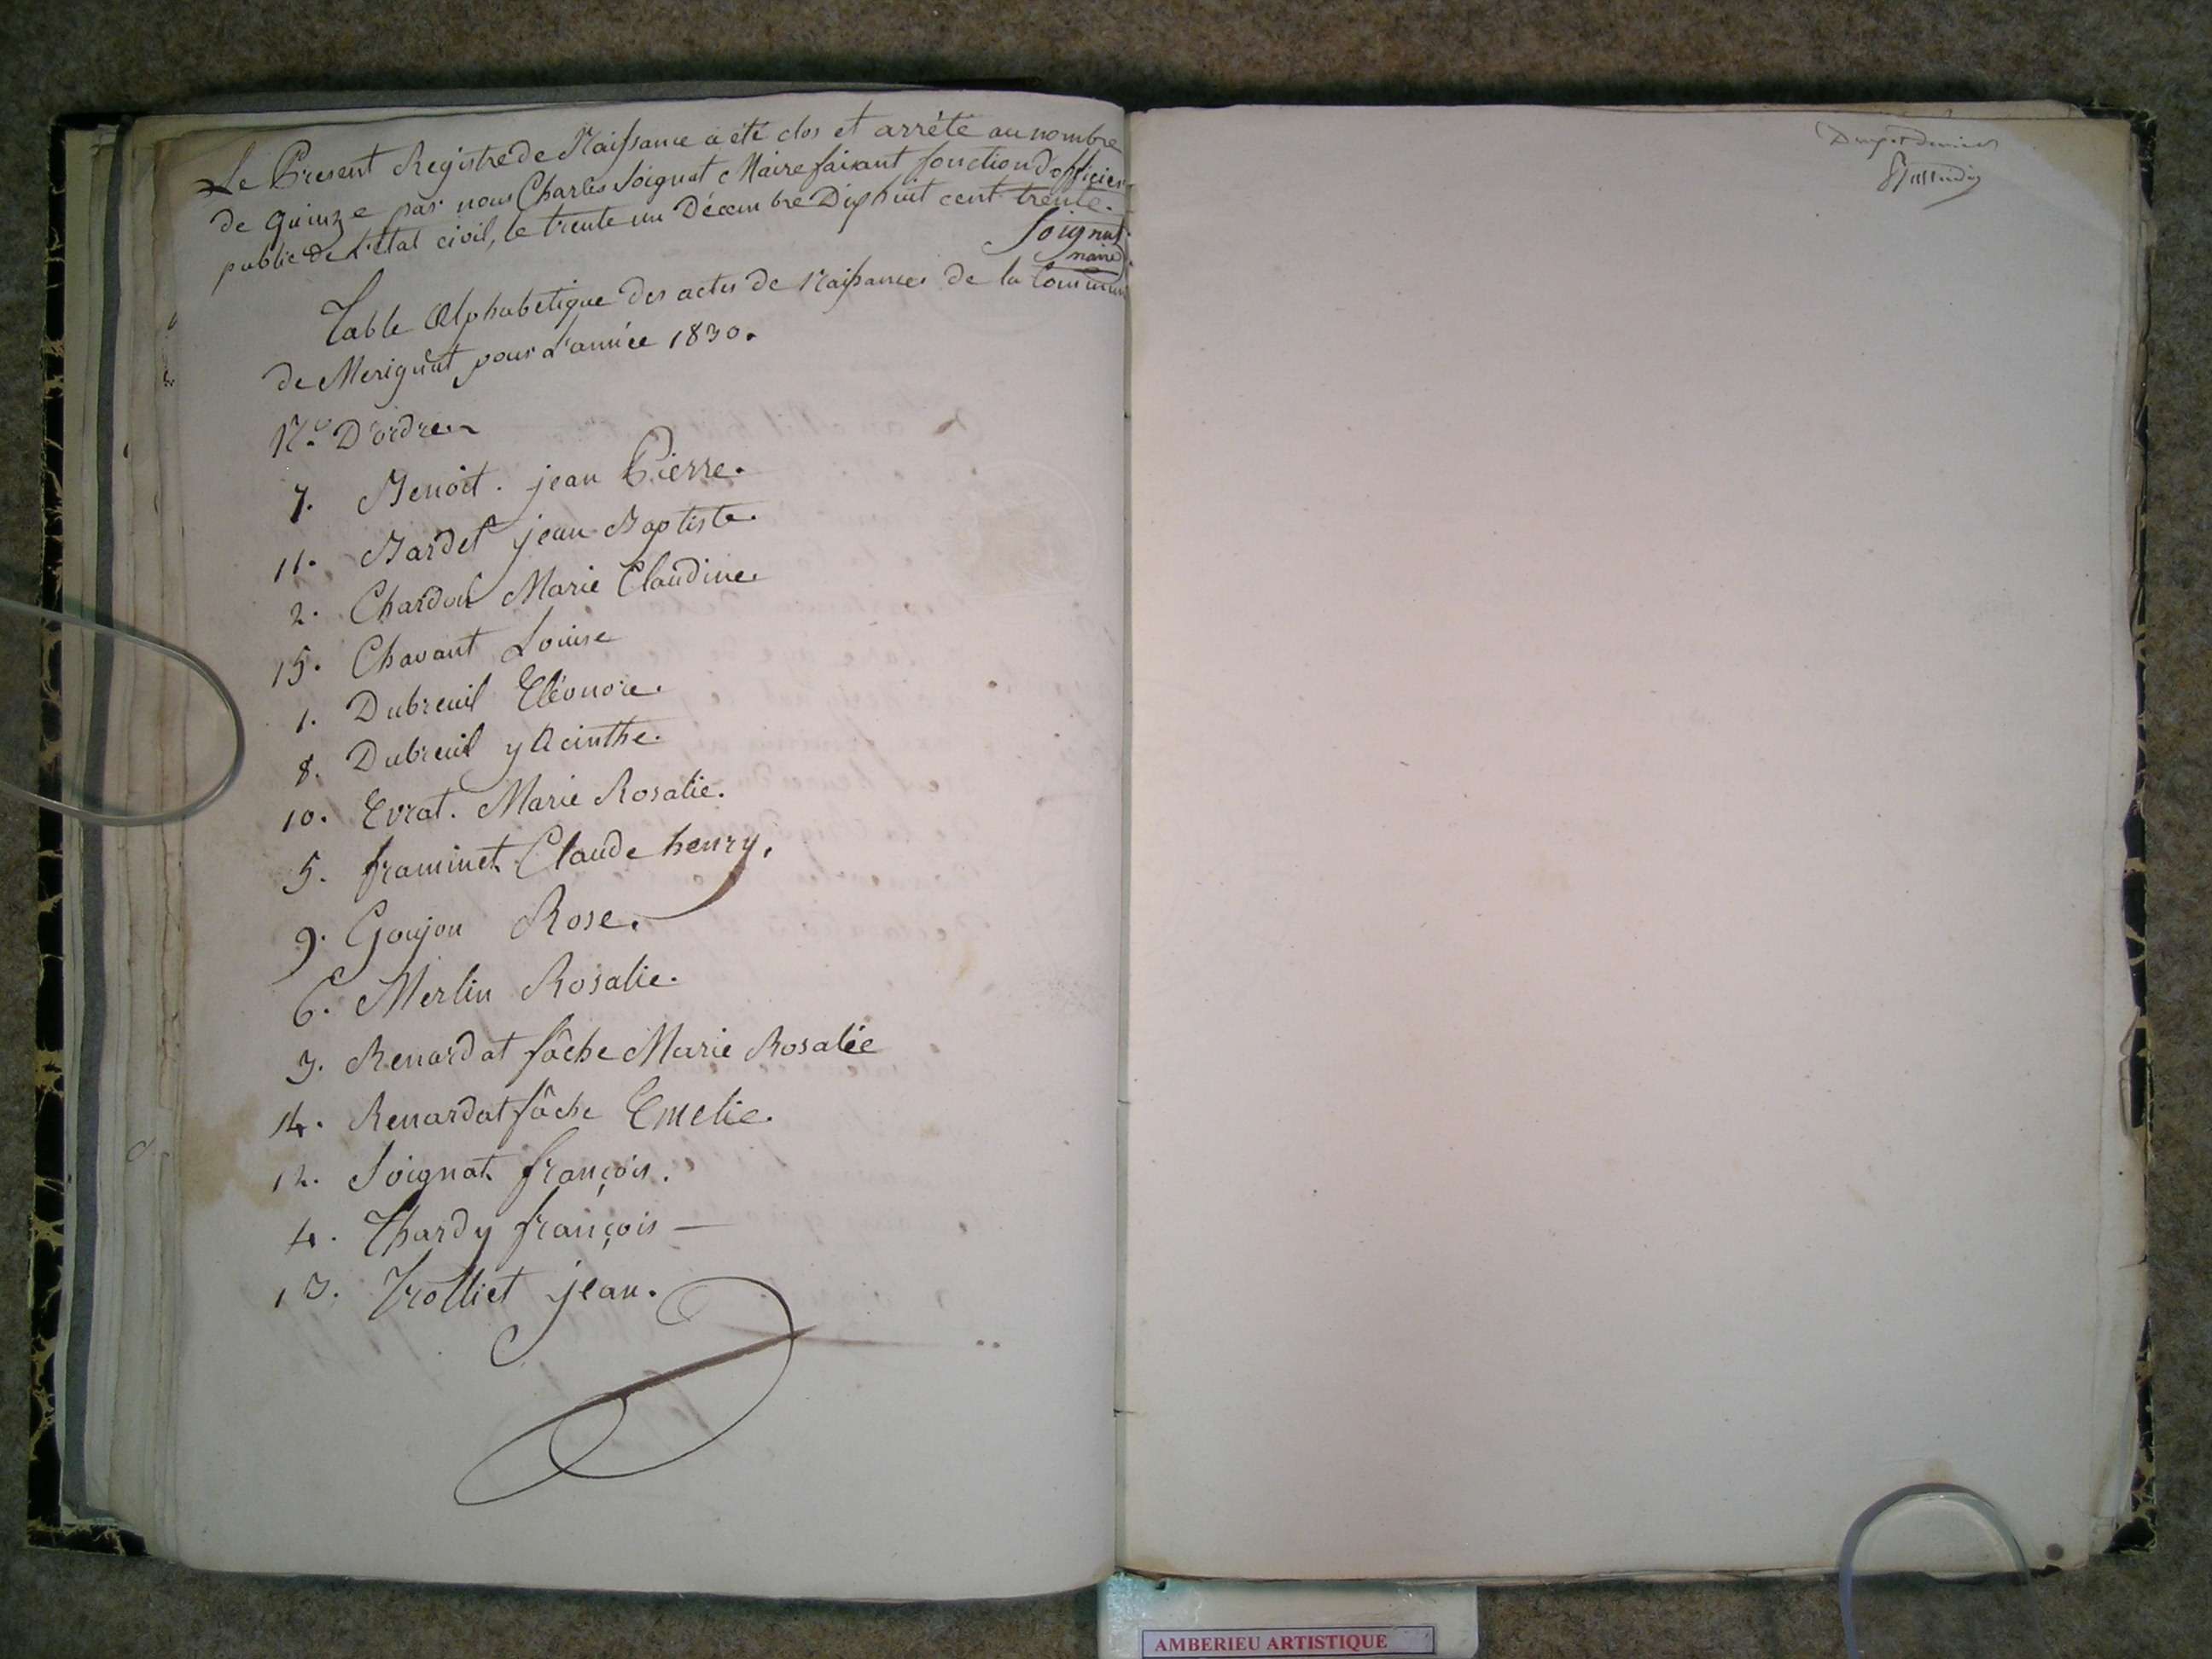 Le Présent Registre de Naissance a été clos et arrêté au nombre
de quinze par nous Charles Soignat Maire faisant fonction d'officier
public de l'état civil, le trente un Décembre Dix huit cent trente.
Soignat
maire
Table Alphabétique des actes de Naissances de la Commune
de Merignat pour l'année 1830.
N.o D'ordre
7. Benoit. jean Pierre.
11. Bardet jean Baptiste.
2. Chardon Marie Claudine.
15. Chavant Louise
1. Dubreuil Eléonore.
8. Dubreuil yAcinthe.
10. Evrat. Marie Rosalie.
5. framinet Claude henry.
9. Goujon Rose.
6. Merlin Rosalie.
3. Renardat fâche Marie Rosalie
14. Renardat fâche Emelie.
12. Soignat françois.
4. Thardy françois —
13. Trolliet jean.
AMBERIEU ARTISTIQUE